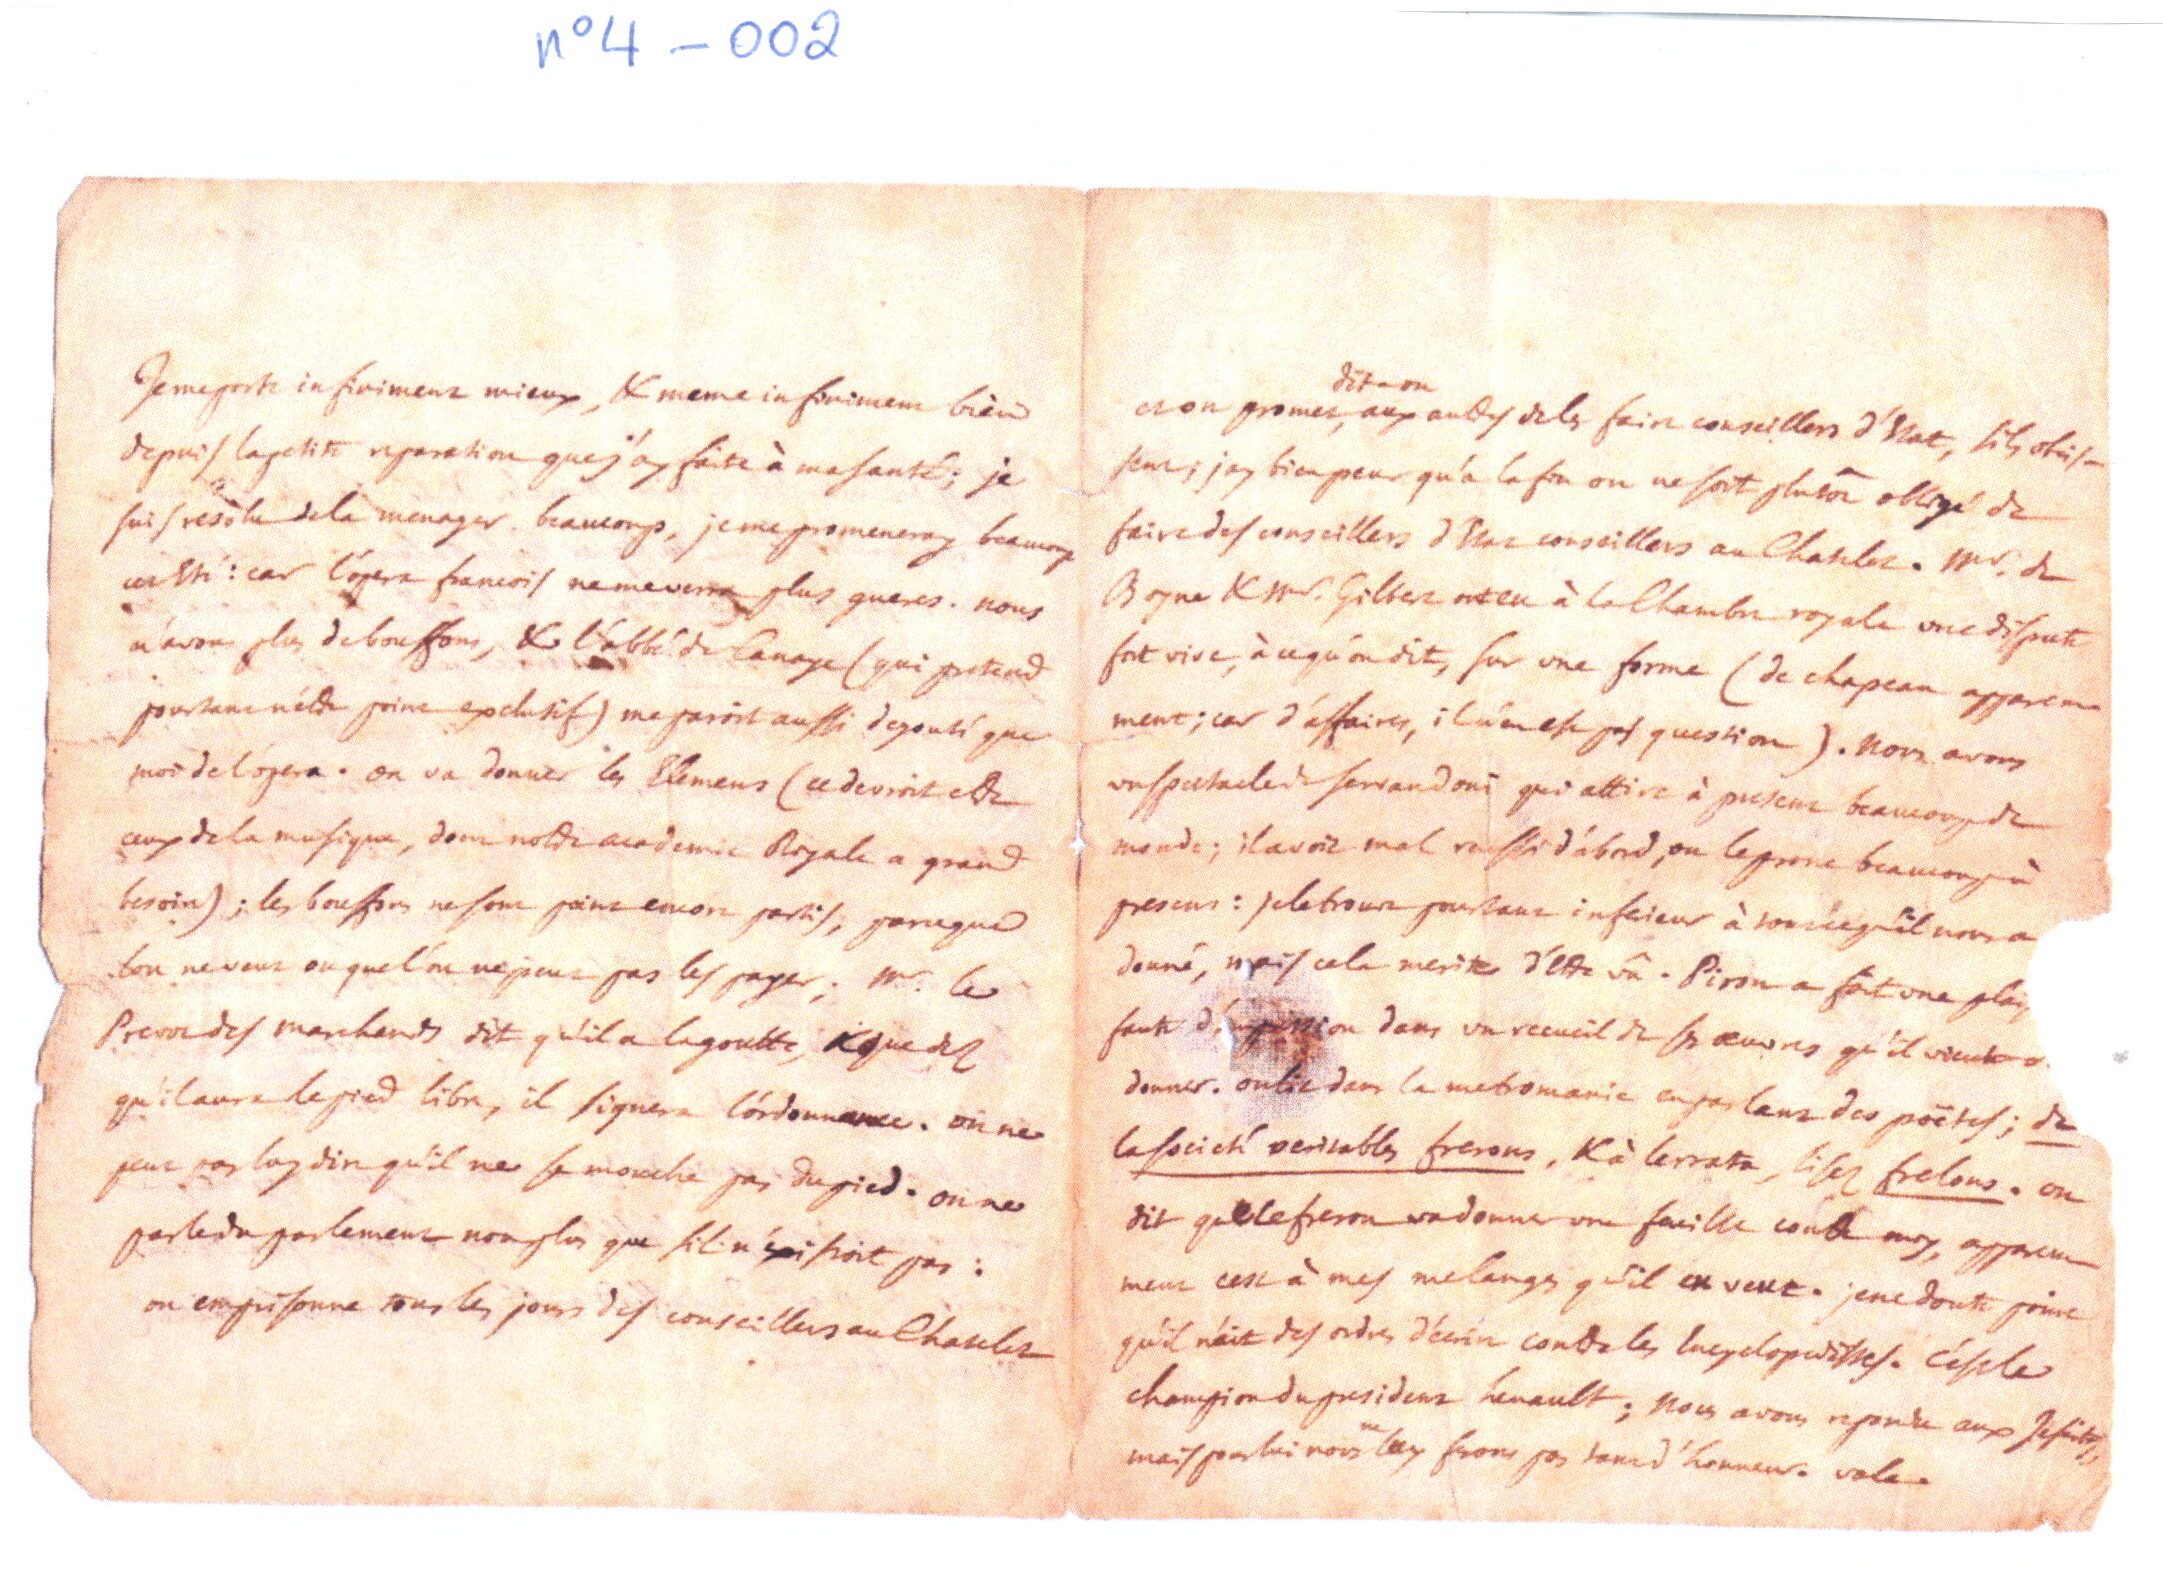 n°4 - 002
Je me porte infiniment mieux, & meme infiniment bien
depuis la petite reparation que j'ay faite à ma santé; je
suis resolu de la menager beaucoup, je me promeneray beaucoup
cet Eté: car l'opera françois ne me verra plus gueres. nous
n'avons plus de bouffons, & l'abbé de Canaye (qui pretend
pourtant n'etre point exclusif) me paroit aussi degouté que
moi de l'opera. on va donner les Elemens (ce devroit etre
ceux de la musique, dont notre academie Royale a grand
besoin); les bouffons ne sont point encore partis, parceque
l'on ne veut ou que l'on ne peut pas les payer; Mr. le
Prevot des marchands dit qu'il a la goutte, & que dez
qu'il aura le pied libre, il signera l'ordonnance. on ne
peut pas luy dire qu'il ne se mouche pas du pied. on ne
parle du parlement non plus que s'il n'existoit pas:
on emprisonne tous les jours des conseillers au Chatelet
dit-on
et on promet, aux autres de les faire conseillers d'Etat, s'ils obéis-
sent; j'ay bien peur qu'à la fin on ne soit plutôt obligé de
faire des conseillers d'Etat conseillers au Chatelet. Mr. de
Boyne & Mr. Gilbert ont eu à la Chambre royale une dispute
fort vive, à ce qu'on dit, sur une forme (de chapeau apparem-
ment; car d'affaires, il n'en est pas question). Nous avons
un spectacle de servandoni qui attire à present beaucoup de
monde; il avoit mal reussi d'abord, on le prone beaucoup à
present: je le trouve pourtant inferieur à tout ce qu'il nous a
donné, mais cela merite d'etre vû. Piron a fait une plai
sante d'impression dans un recueil de ses œuvres qu'il vient
donner. on lit dans la metromanie en parlant des poëtes; de
la societé veritables frerons, & à l'errata, lisez frelons. on
dit que le freron va donner une feuille contre moy, apparem-
ment c'est à mes melanges qu'il en veut. je ne doute point
qu'il n'ait des ordres d'écrire contre les Encyclopedistes. C'est le
champion du president henault; Nous avons repondu aux Jesuites,
mais pour lui nous ne luy ferons pas tant d'honneur. vale.